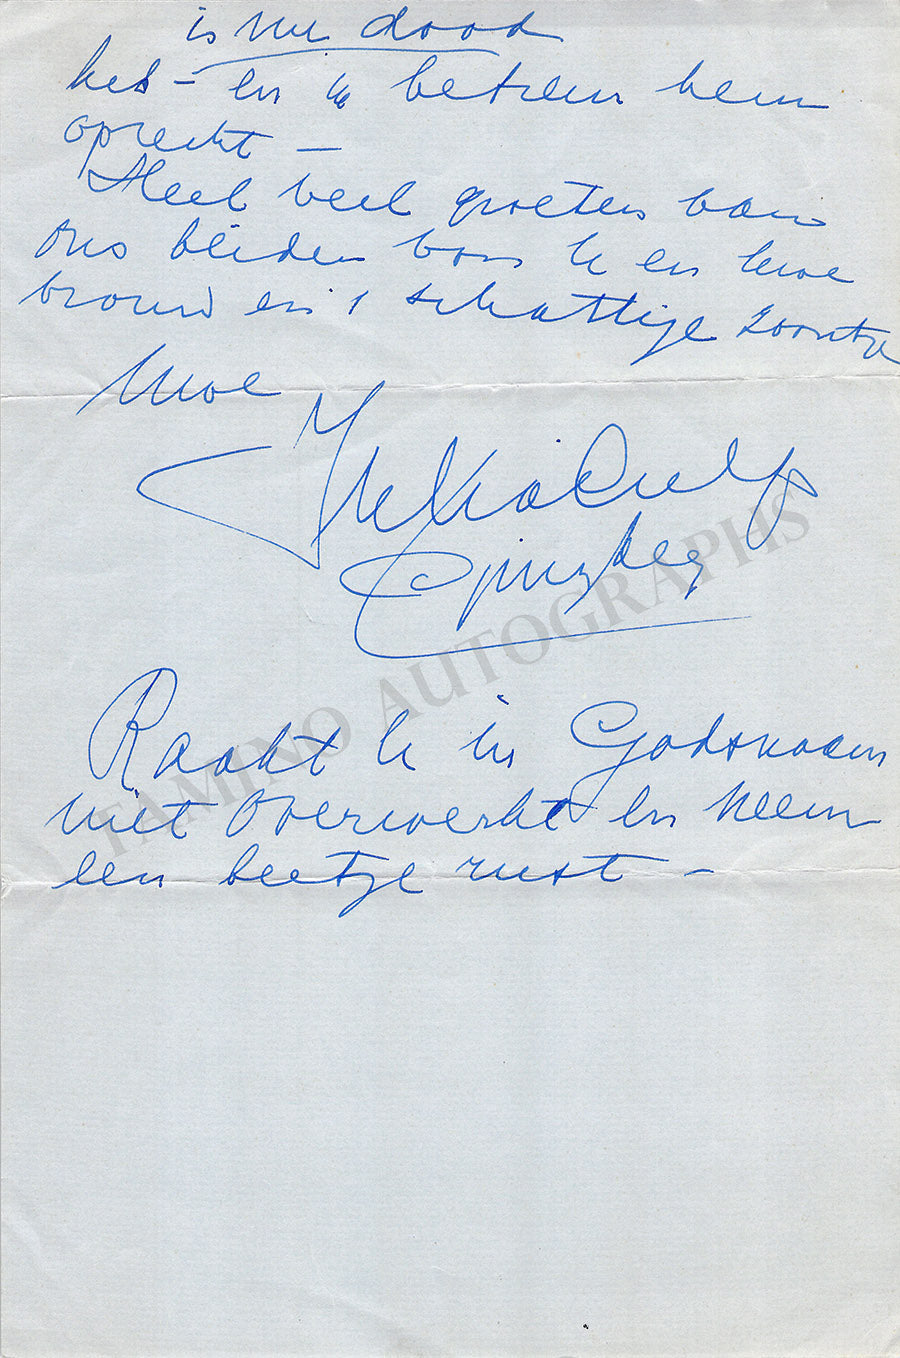 is nu dood
het – en ik betreur hem
oprecht –
Heel veel groeten van
ons beiden voor U en Uwe
vrouw en 't schattige zoontje
Uwe
Julia Culp
Ginzkey
Raakt U in Godsnaam
niet overwerkt en neem
een beetje rust –
TAMINO AUTOGRAPHS